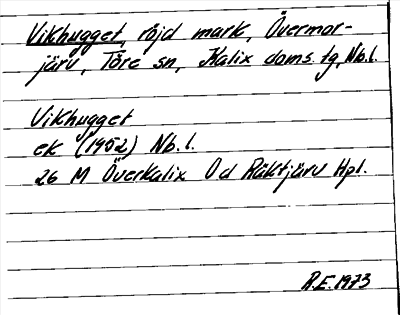 Vikhugget, röjd mark, Övermor-
järv, Töre sn, Kalix doms.tg, Nb.l.
Vikhugget
ek (1952) Nb.l.
26 M Överkalix Od Räktjärv Hpl.
R.E. 1973